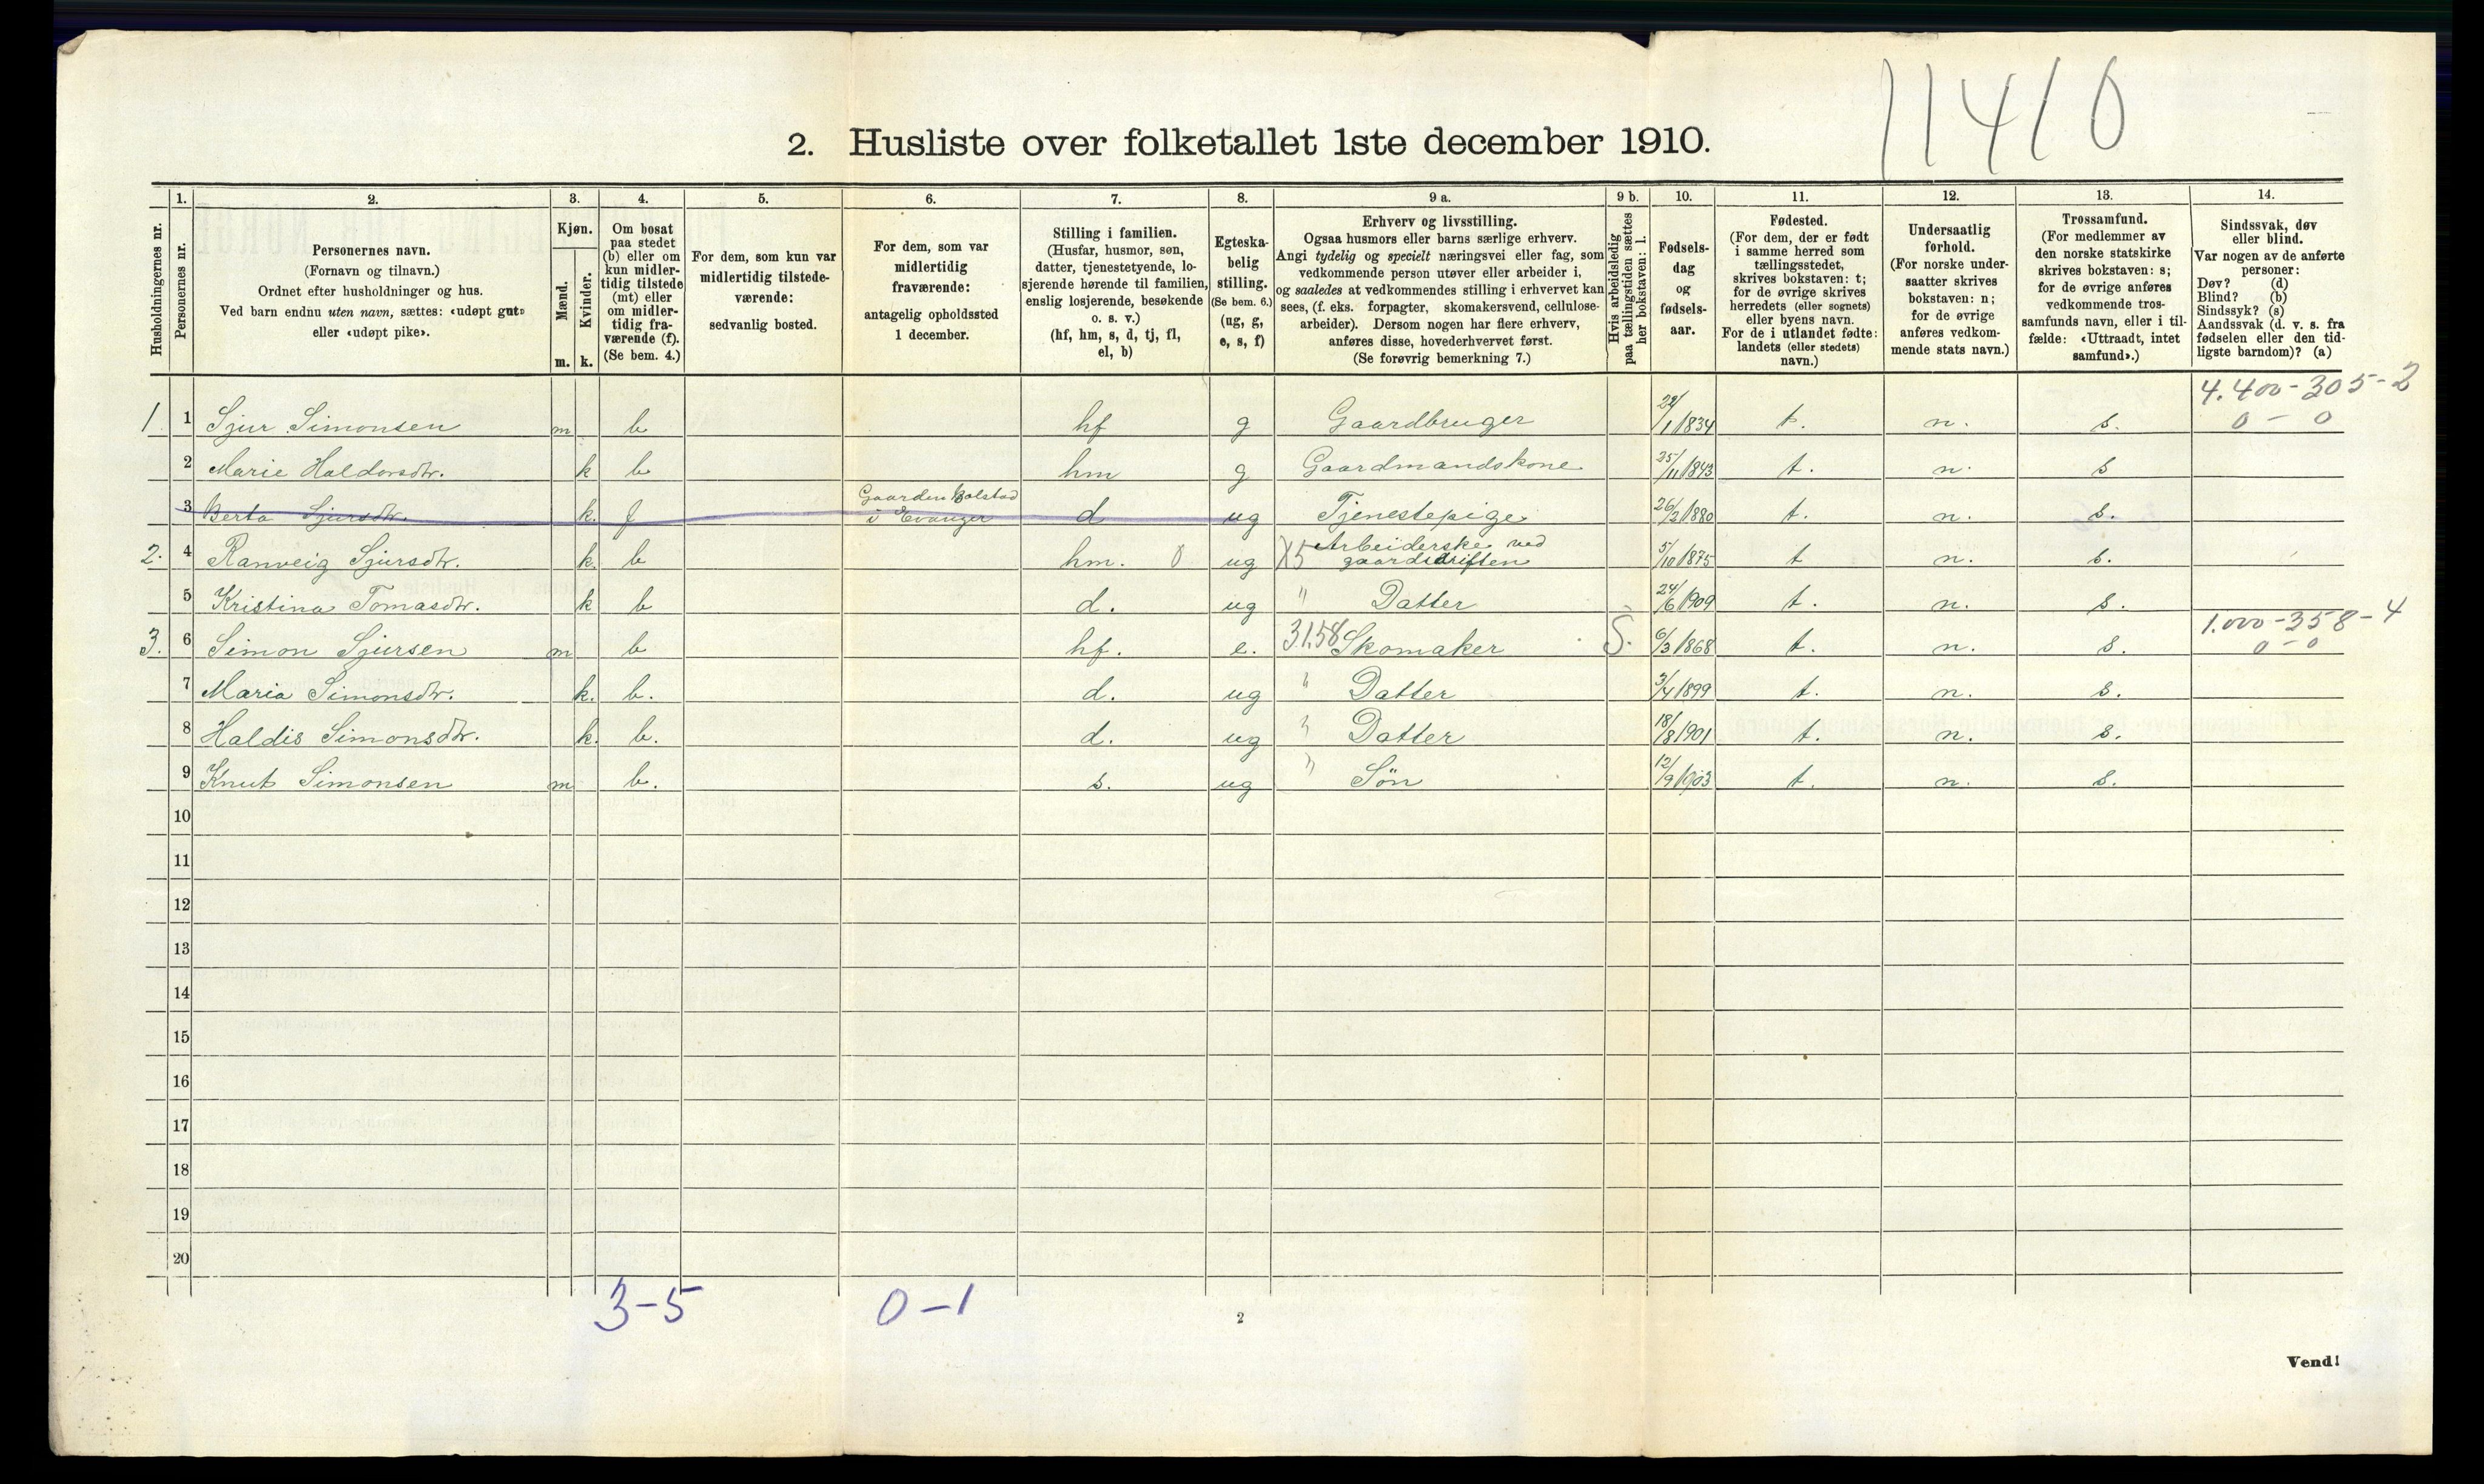 11410
2. Husliste over folketallet 1ste december 1910.
Husholdningernes nr.
1. Personernes nr.
2.
Personernes navn.
(Fornavn og tilnavn.)
Ordnet efter husholdninger og hus.
Ved barn endnu uten navn, sættes: «udøpt gut»
eller «udøpt pike».
3.
Kjøn.
Mænd. m.
Kvinder. k.
4.
Om bosat
paa stedet
(b) eller om
kun midler-
tidig tilstede
(mt) eller
om midler-
tidig fra-
værende (f).
(Se bem. 4.)
5.
For dem, som kun var
midlertidig tilstede-
værende:
sedvanlig bosted.
6.
For dem, som var
midlertidig
fraværende:
antagelig opholdssted
1 december.
7.
Stilling i familien.
(Husfar, husmor, søn,
datter, tjenestetyende, lo-
sjerende hørende til familien,
enslig losjerende, besøkende
o. s. v.)
(hf, hm, s, d, tj, fl,
el, b)
8.
Egteska-
belig
stilling.
(Se bem. 6.)
(ug, g,
e, s, f)
9 a.
Erhverv og livsstilling.
Ogsaa husmors eller barns særlige erhverv.
Angi tydelig og specielt næringsvei eller fag, som
vedkommende person utøver eller arbeider i,
og saaledes at vedkommendes stilling i erhvervet kan
sees, (f. eks. forpagter, skomakersvend, cellulose-
arbeider). Dersom nogen har flere erhverv,
anføres disse, hovederhvervet først.
(Se forøvrig bemerkning 7.)
9 b.
Hvis arbeidsledig
paa tællingstiden sættes
her bokstaven: l.
10.
Fødsels-
dag
og
fødsels-
aar.
11.
Fødested.
(For dem, der er født
i samme herred som
tællingsstedet,
skrives bokstaven: t;
for de øvrige skrives
herredets (eller sognets)
eller byens navn.
For de i utlandet fødte:
landets (eller stedets)
navn.)
12.
Undersaatlig
forhold.
(For norske under-
saatter skrives
bokstaven: n;
for de øvrige
anføres vedkom-
mende stats navn.)
13.
Trossamfund.
(For medlemmer av
den norske statskirke
skrives bokstaven: s;
for de øvrige anføres
vedkommende tros-
samfunds navn, eller i til-
fælde: «Uttraadt, intet
samfund».)
14.
Sindssvak, døv
eller blind.
Var nogen av de anførte
personer:
Døv? (d)
Blind? (b)
Sindssyk? (s)
Aandssvak (d. v. s. fra
fødselen eller den tid-
ligste barndom)? (a)
4.400-305-2
1. 1 Sjur Simonsen m b hf g Gaardbruger 22/1 1834 t. n. s. 0 - 0
2 Marie Haldorsdtr. k b hm g Gaardmandskone 25/11 1843 t. n. s
3 Berta Sjursdtr. k. f Gaarden Bolstad i Evanger d ug Tjenestepige 26/2 1880 t. n. s.
2. 4 Ranveig Sjursdtr. k. b hm. 0 ug X5 Arbeiderske ved gaardsdriften 5/10 1875 t n. s.
5 Kristina Tomasdtr. k b d. ug " Datter 24/6 1909 t. n. s.
1.000-358-4
3. 6 Simon Sjursen m b hf. e. 31.58 Skomaker S. 6/3 1868 t. n. s. 0 - 0
7 Maria Simonsdtr. k. b. d. ug " Datter 3/4 1899 t. n. s.
8 Haldis Simonsdtr. k. b. d. ug " Datter 18/8 1901 t. n. s.
9 Knut Simonsen m b. s. ug " Søn 12/9 1903 t. n. s.
10
11
12
13
14
15
16
17
18
19
20
3-5 0-1
2
Vend!